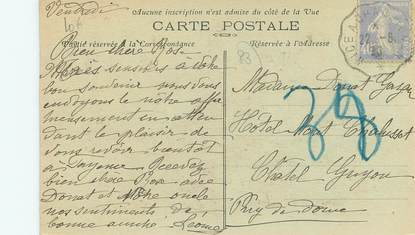 Vendredi
Aucune inscription n'est admise du côté de la Vue
CARTE POSTALE
Partie réservée à la Correspondance
Réservée à l'Adresse
Bien chère Rose
sensibles à votre
bon souvenir nous vous
envoyons le notre affec
tueusement en atten
dant le plaisir de
vous revoir bientôt
à Recevez
bien chère Rose avec
Donat et Mère oncle
nos sentiments de
bonne amitié Léonie
Madame Donat
Hôtel Mont Chalusset
Chatel Guyon
Puy de dôme